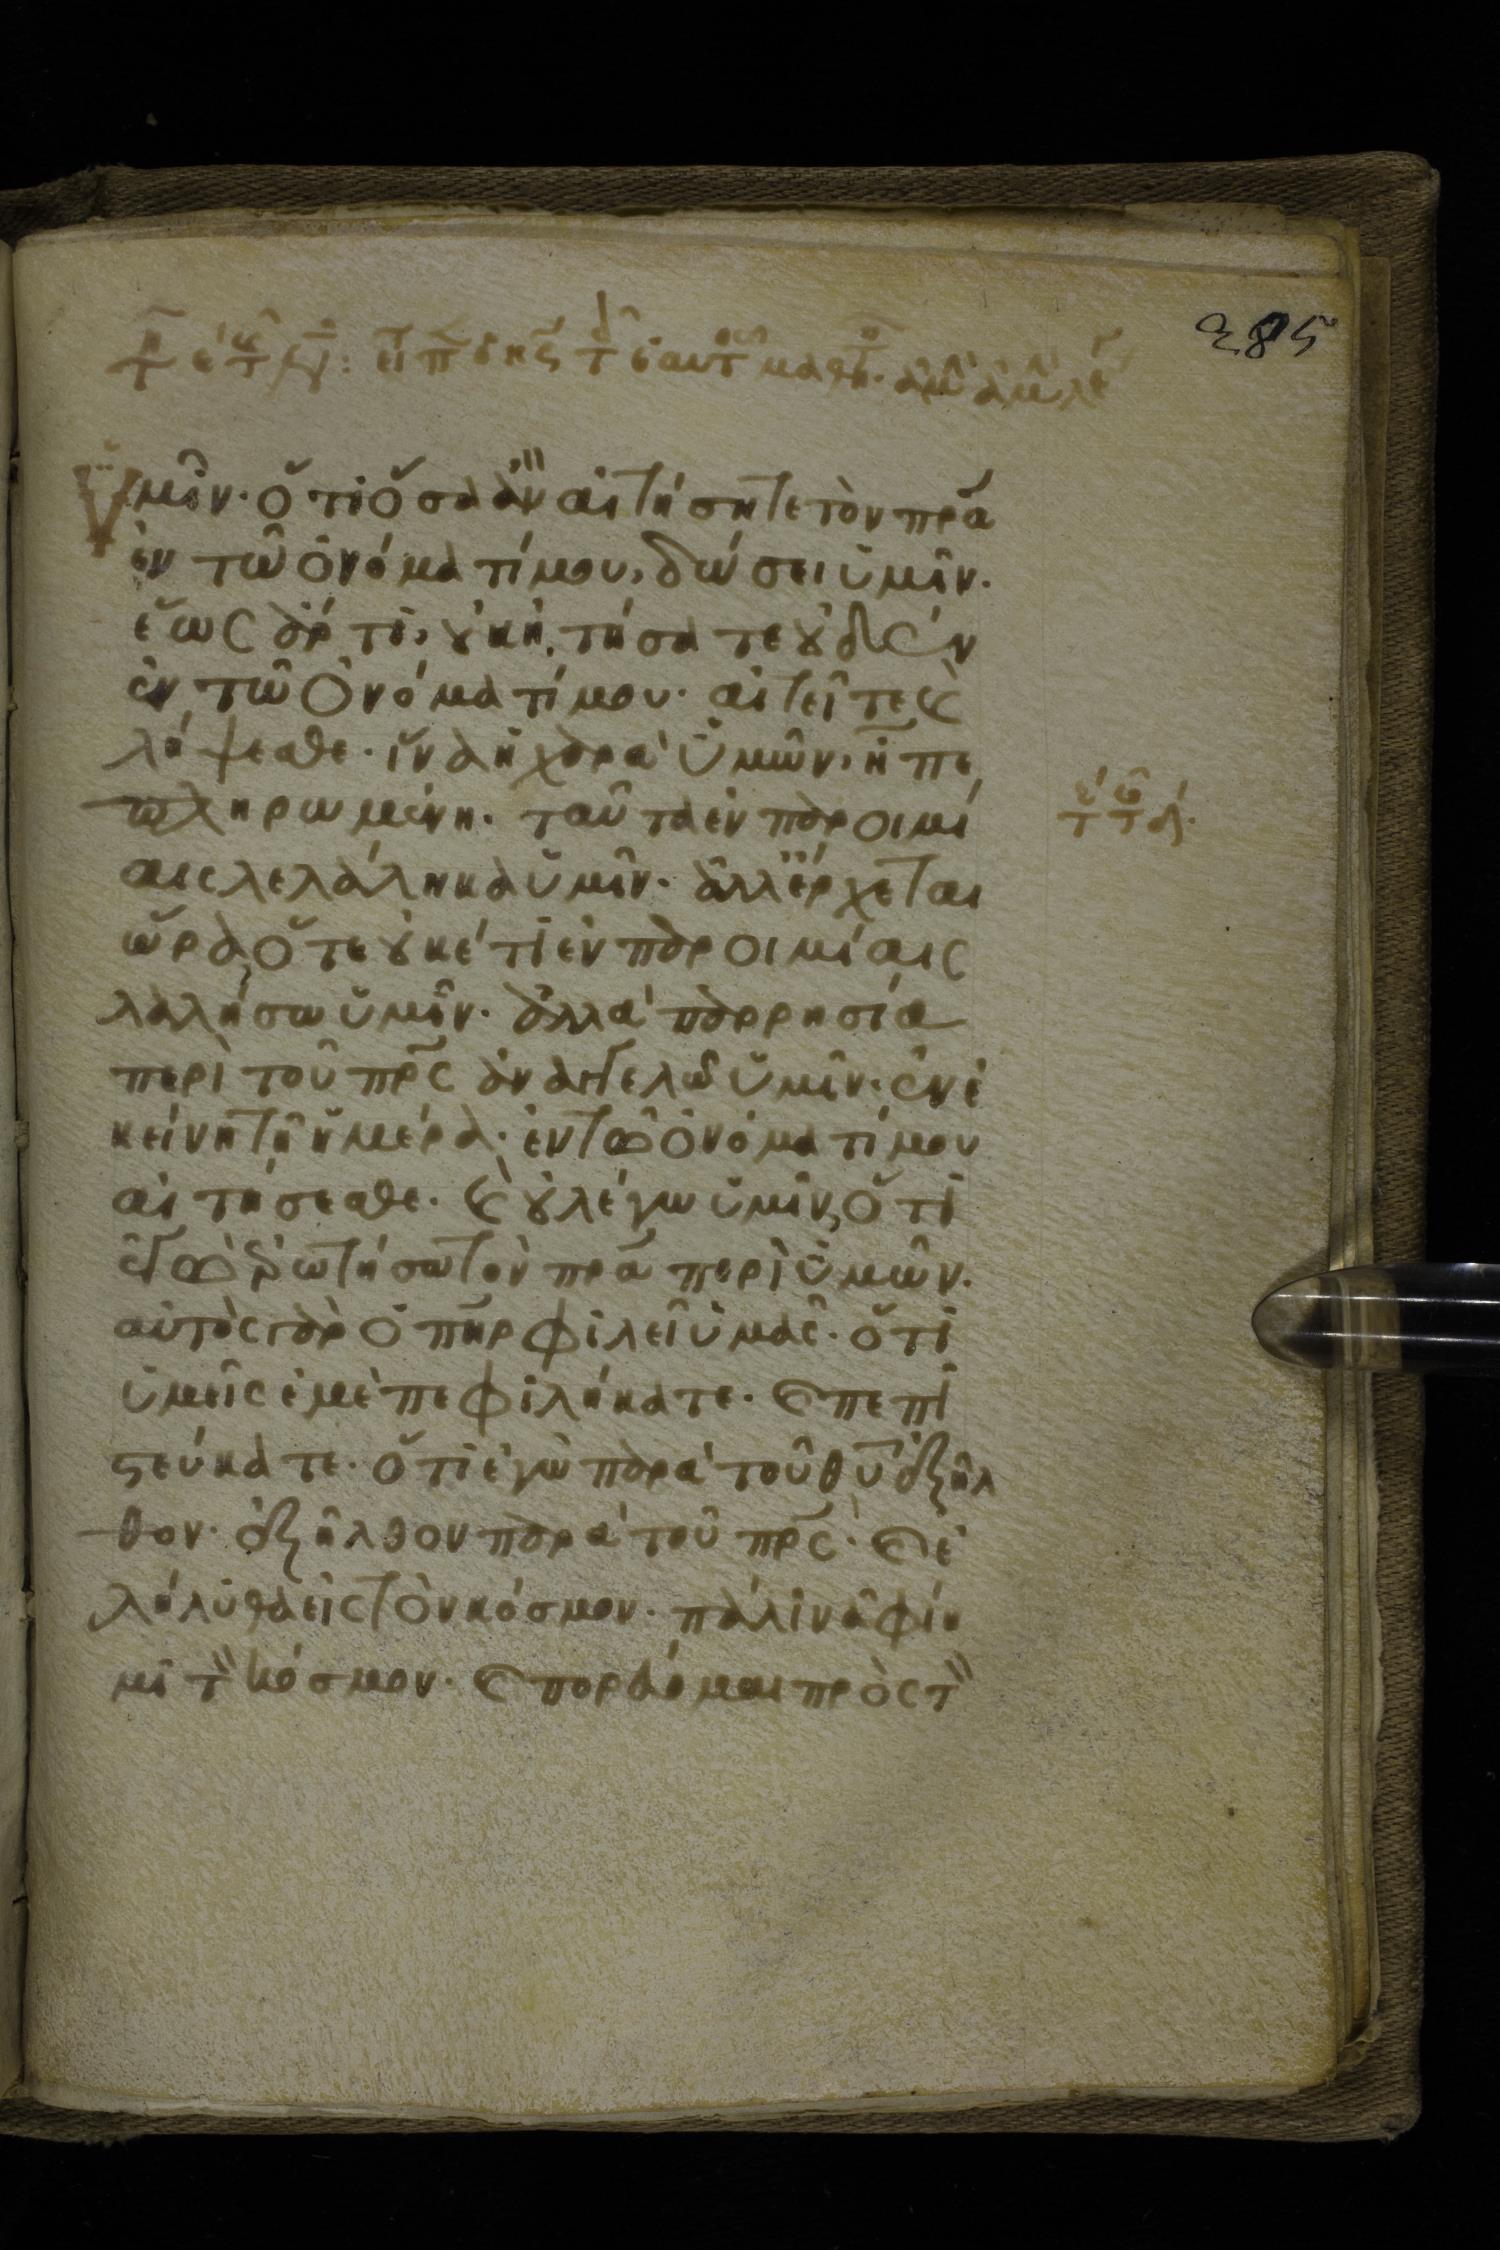 285
ὑμῖν· ὅτι ὅσα ἂν αἰτήσητε τὸν πρ̅α
ἐν τῶ ὀνόματί μου, δώσει ὑμῖν·
ἕως ἄρτι, οὐκ ἠτήσατε οὐδὲν
ἐν τῶ ὀνόματί μου· αἰτεῖτε καὶ
λήψεσθε· ἵνα ἡ χαρὰ ὑμῶν, ἦ πε
πληρωμένη· ταῦτα ἐν παροιμί
αις λελάληκα ὑμῖν· ἀλλ' ἔρχεται
ὥρα, ὅτε οὐκέτι ἐν παροιμίαις
λαλήσω ὑμῖν· ἀλλὰ παρρησία
περὶ τοῦ πρ̅ς ἀναγγελῶ ὑμῖν· ἐν ἐ
κείνη τῆ ἡμέρα· ἐν τῶ ὀνόματί μου
αἰτήσεσθε· καὶ οὐ λέγω ὑμῖν, ὅτι
ἐγὼ ἐρωτήσω τὸν πρ̅α περὶ ὑμῶν·
αὐτὸς γὰρ ὁ π̅ηρ φιλεῖ ὑμᾶς· ὅτι
ὑμεῖς ἐμὲ πεφιλήκατε· καὶ πεπι
στεύκατε· ὅτι ἐγὼ παρὰ τοῦ θ̅υ ἐξῆλ
θον· ἐξῆλθον παρὰ τοῦ πρ̅ς· καὶ ἐ
λήλυθα εἰς τὸν κόσμον· πάλιν ἀφίη
μι τὸν κόσμον· καὶ πορεύομαι πρὸς τὸν